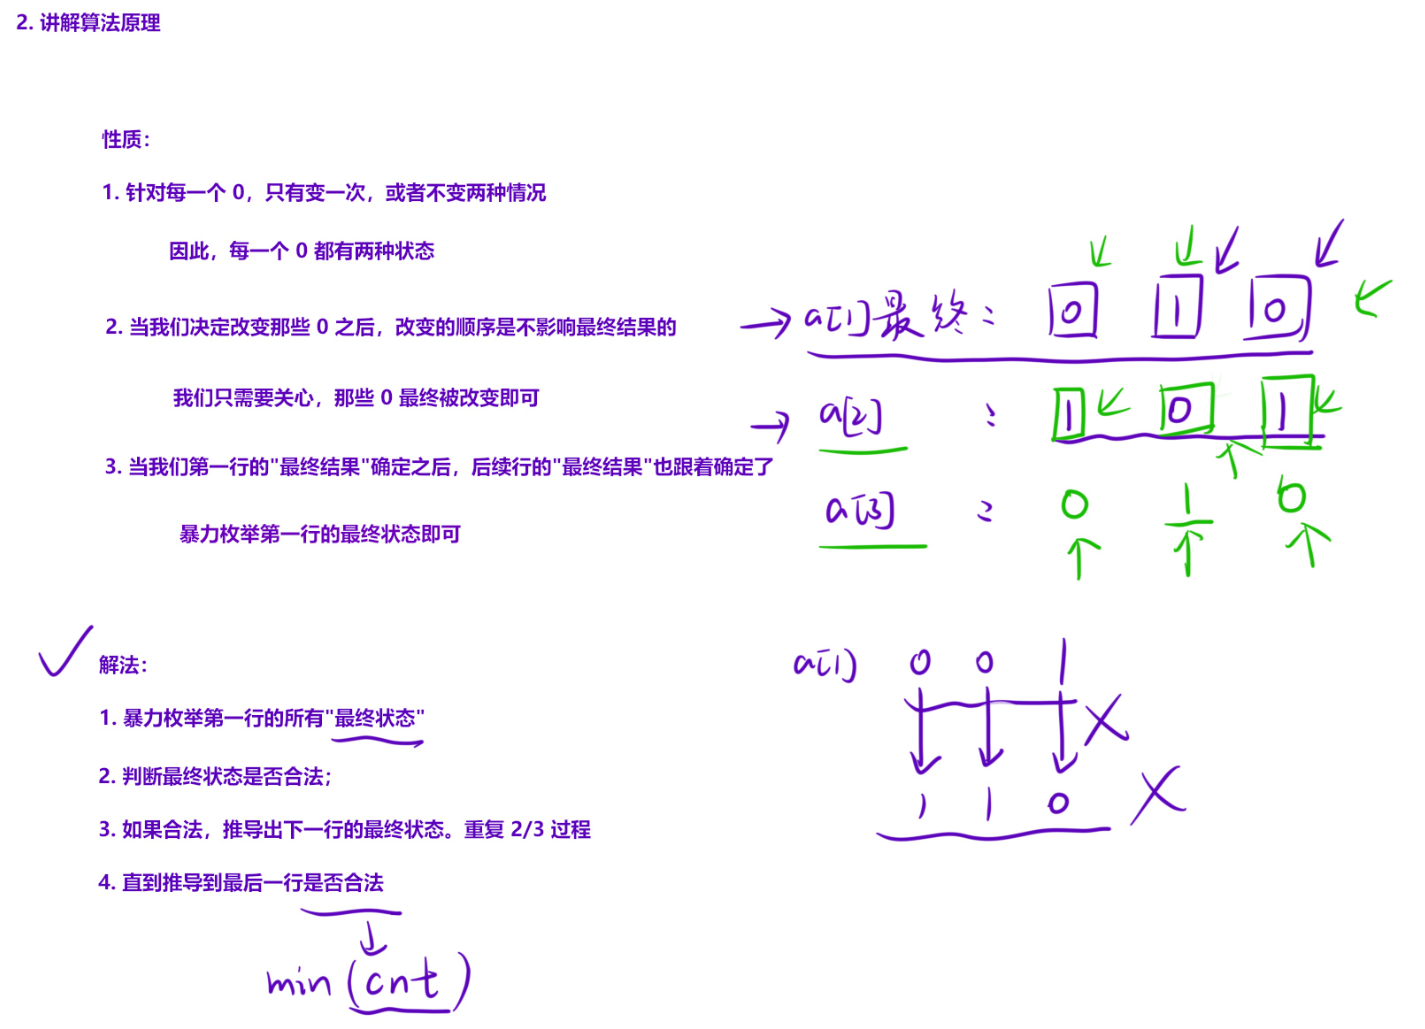 2. 讲解算法原理
性质：
1. 针对每一个 0，只有变一次，或者不变两种情况
因此，每一个 0 都有两种状态
2. 当我们决定改变那些 0 之后，改变的顺序是不影响最终结果的
我们只需要关心，那些 0 最终被改变即可
3. 当我们第一行的"最终结果"确定之后，后续行的"最终结果"也跟着确定了
暴力枚举第一行的最终状态即可
a[1]最终： 0 1 0
a[2] ： 1 0 1
a[3] ： 0 1 0
解法：
1. 暴力枚举第一行的所有"最终状态"
2. 判断最终状态是否合法；
3. 如果合法，推导出下一行的最终状态。重复 2/3 过程
4. 直到推导到最后一行是否合法
min (cnt)
a[1] 0 0 1
1 1 0